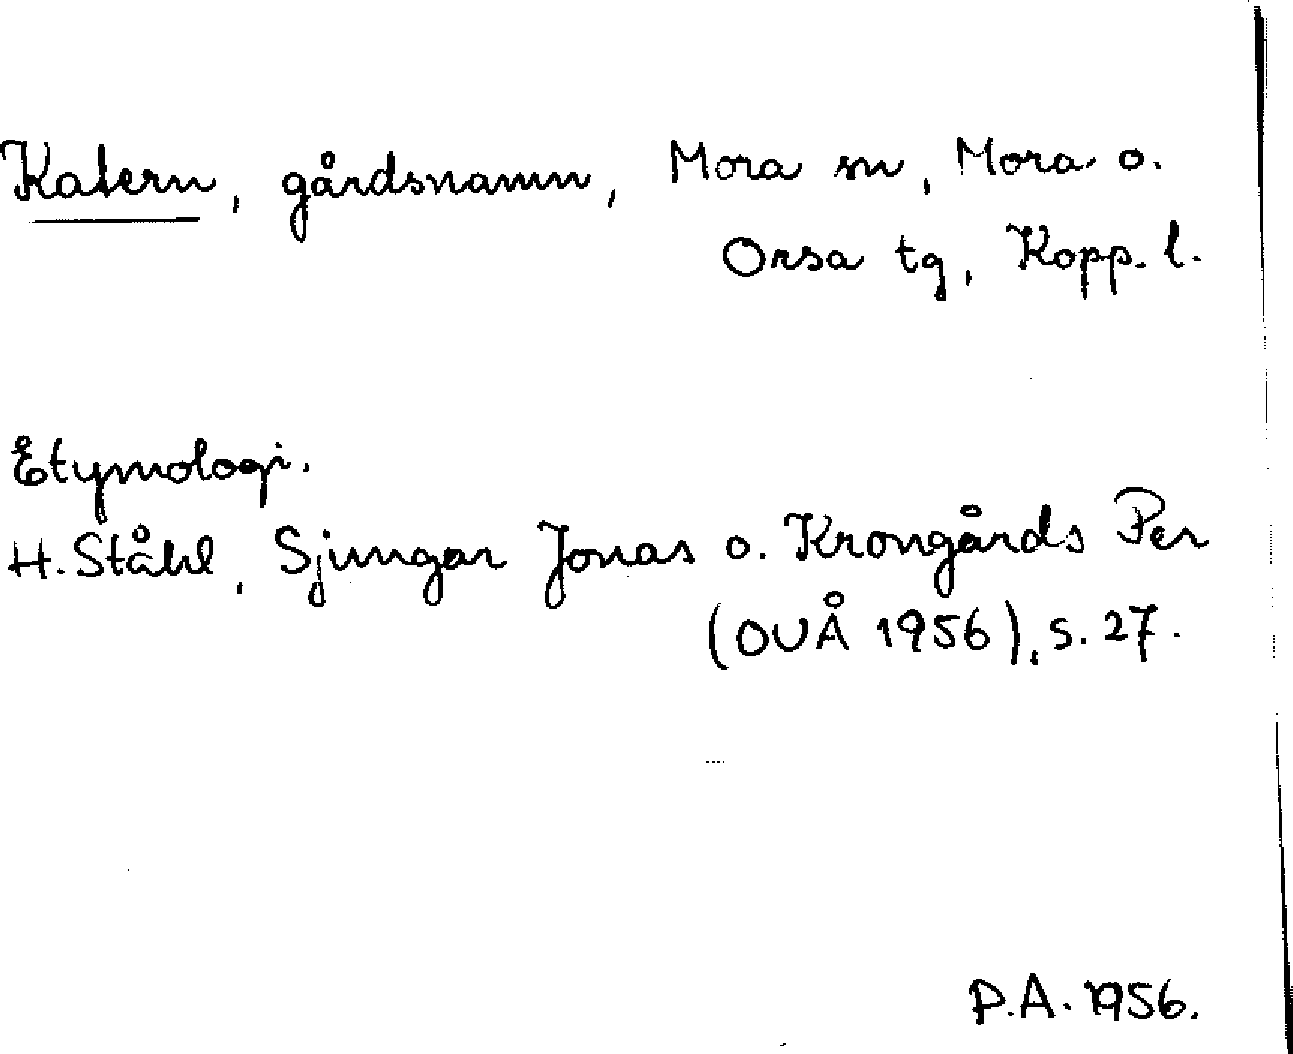 Katern, gårdsnamn, Mora sn, Mora o.
Orsa tg, Kopp. l.
Etymologi.
H. Ståhl, Sjungar Jonas o. Krongårds Per
(OUÅ 1956), s. 27.
P.A. 1956.